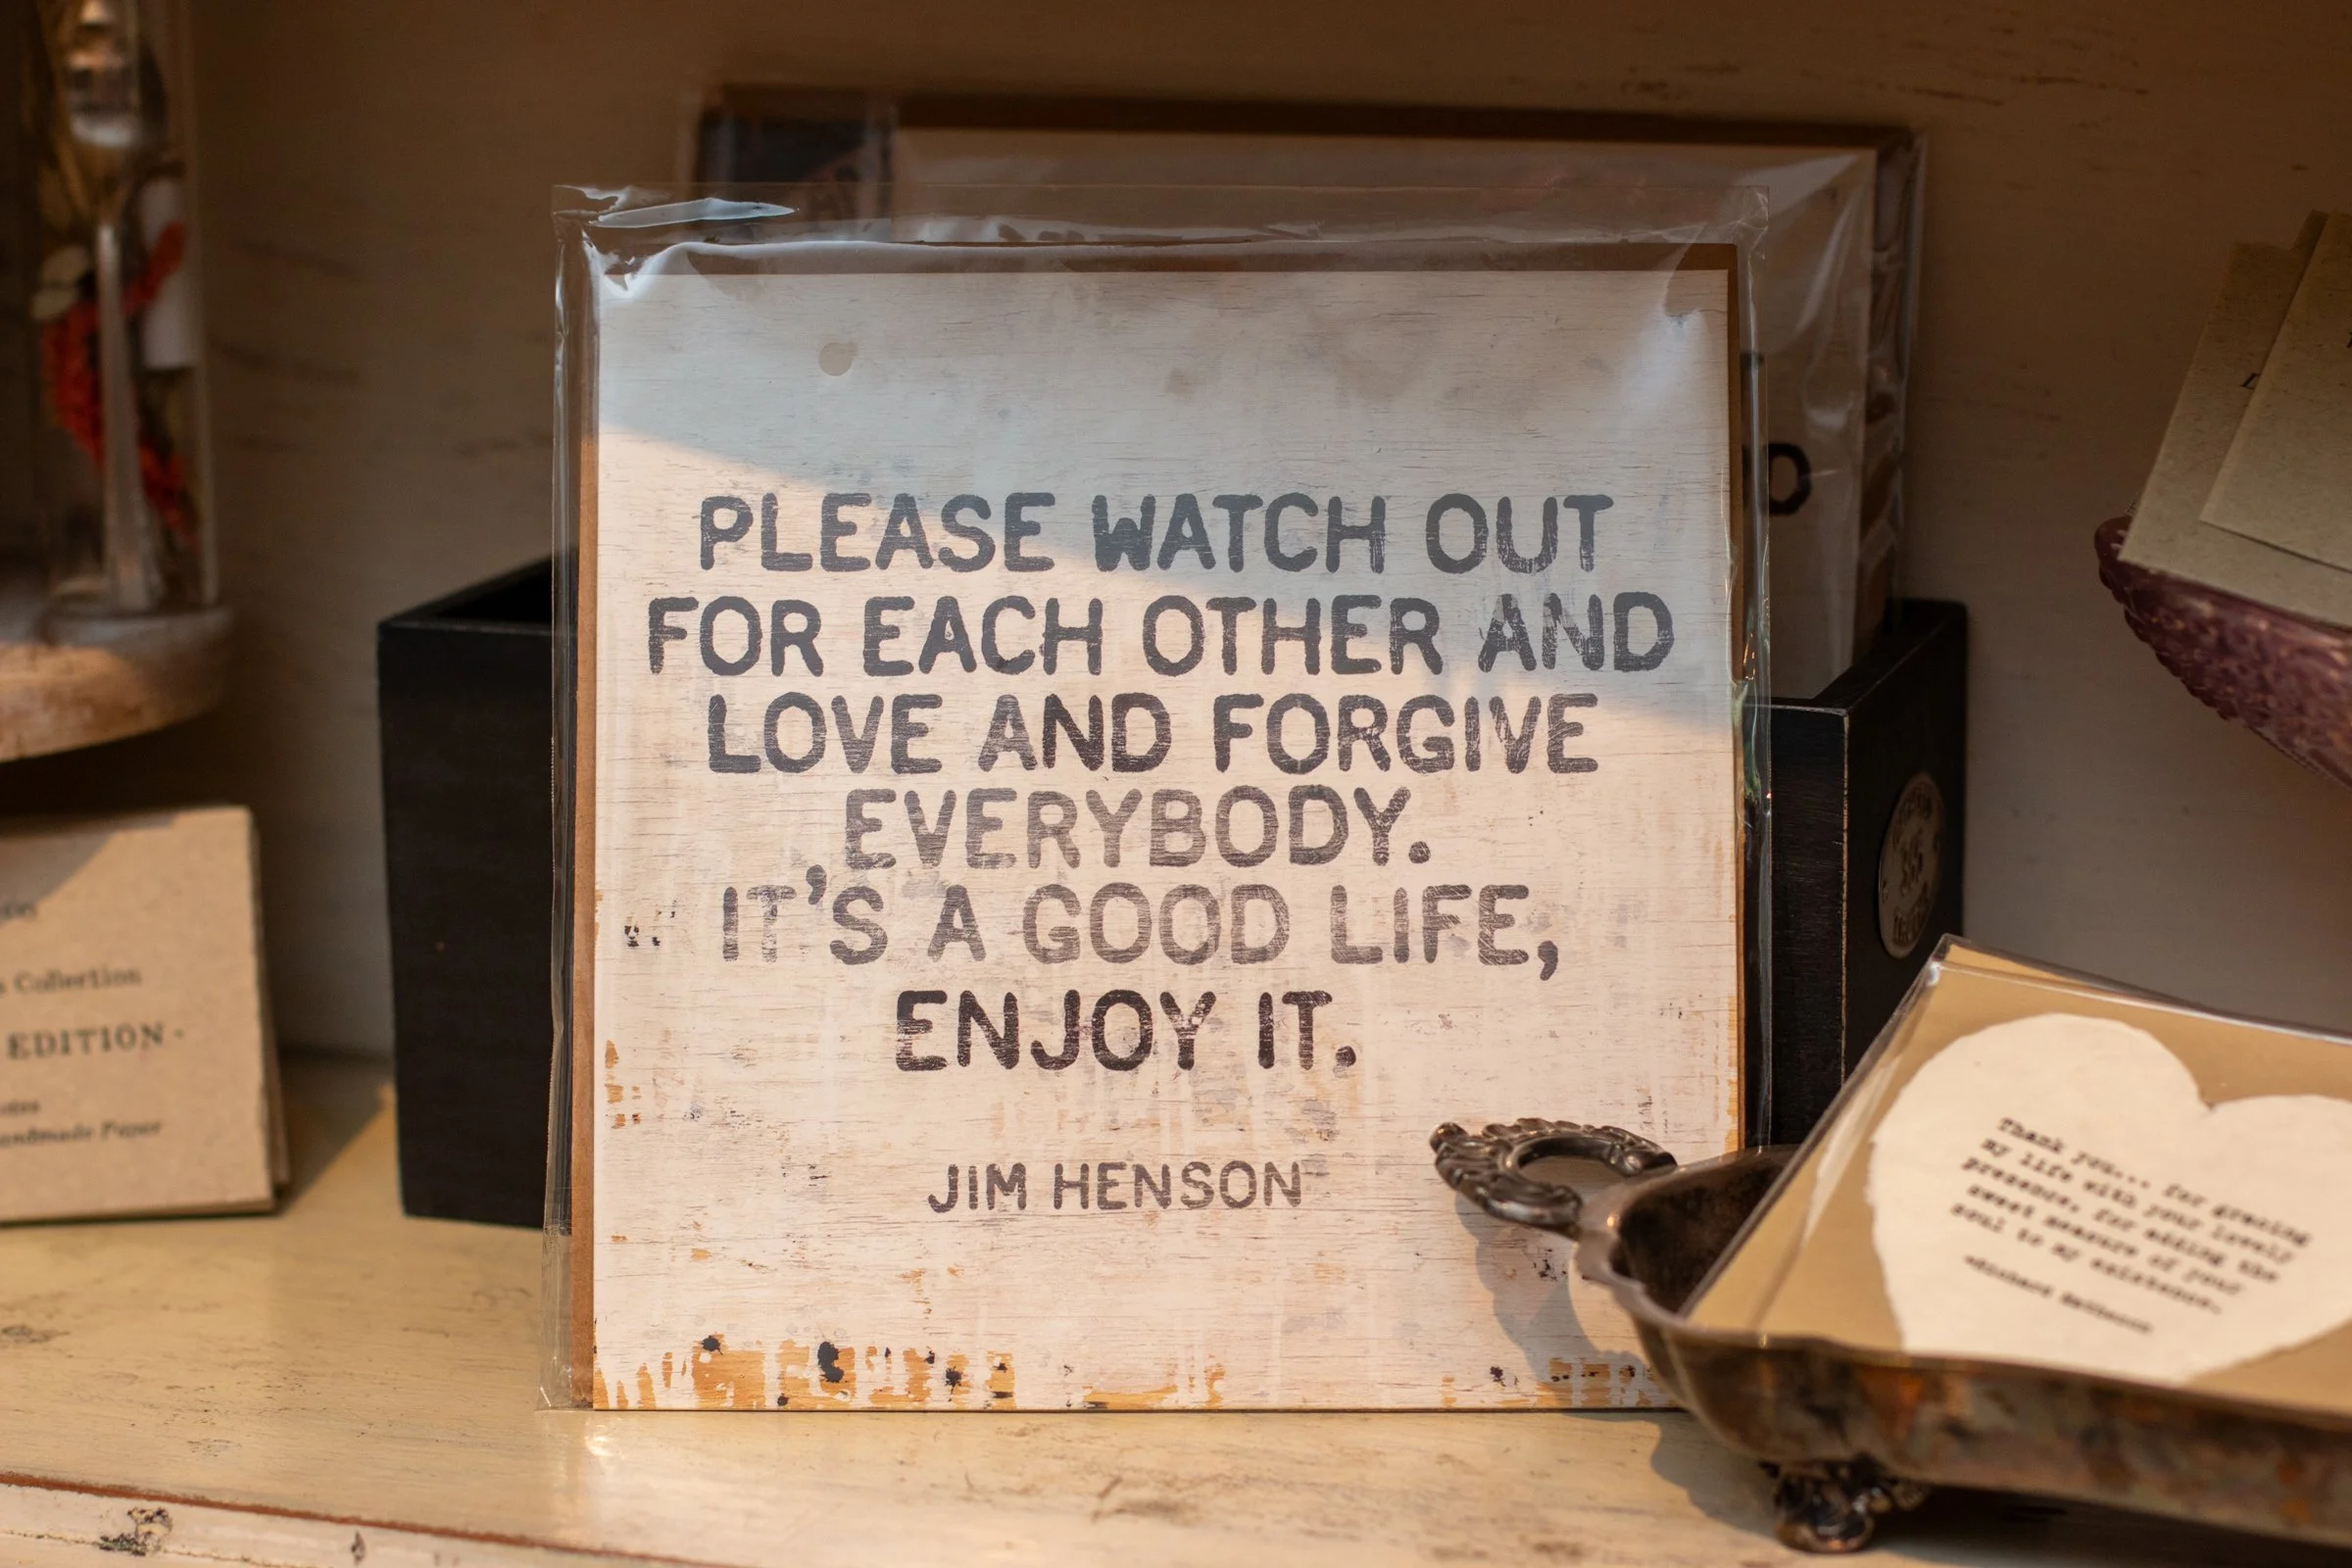 PLEASE WATCH OUT
FOR EACH OTHER AND
LOVE AND FORGIVE
EVERYBODY.
IT'S A GOOD LIFE,
ENJOY IT.
JIM HENSON
Collection
EDITION -
Handmade Paper
Thank you... for gracing
my life with your lovely
presence, for adding the
sweet measure of your
soul to my existence.
-Richard Matheson